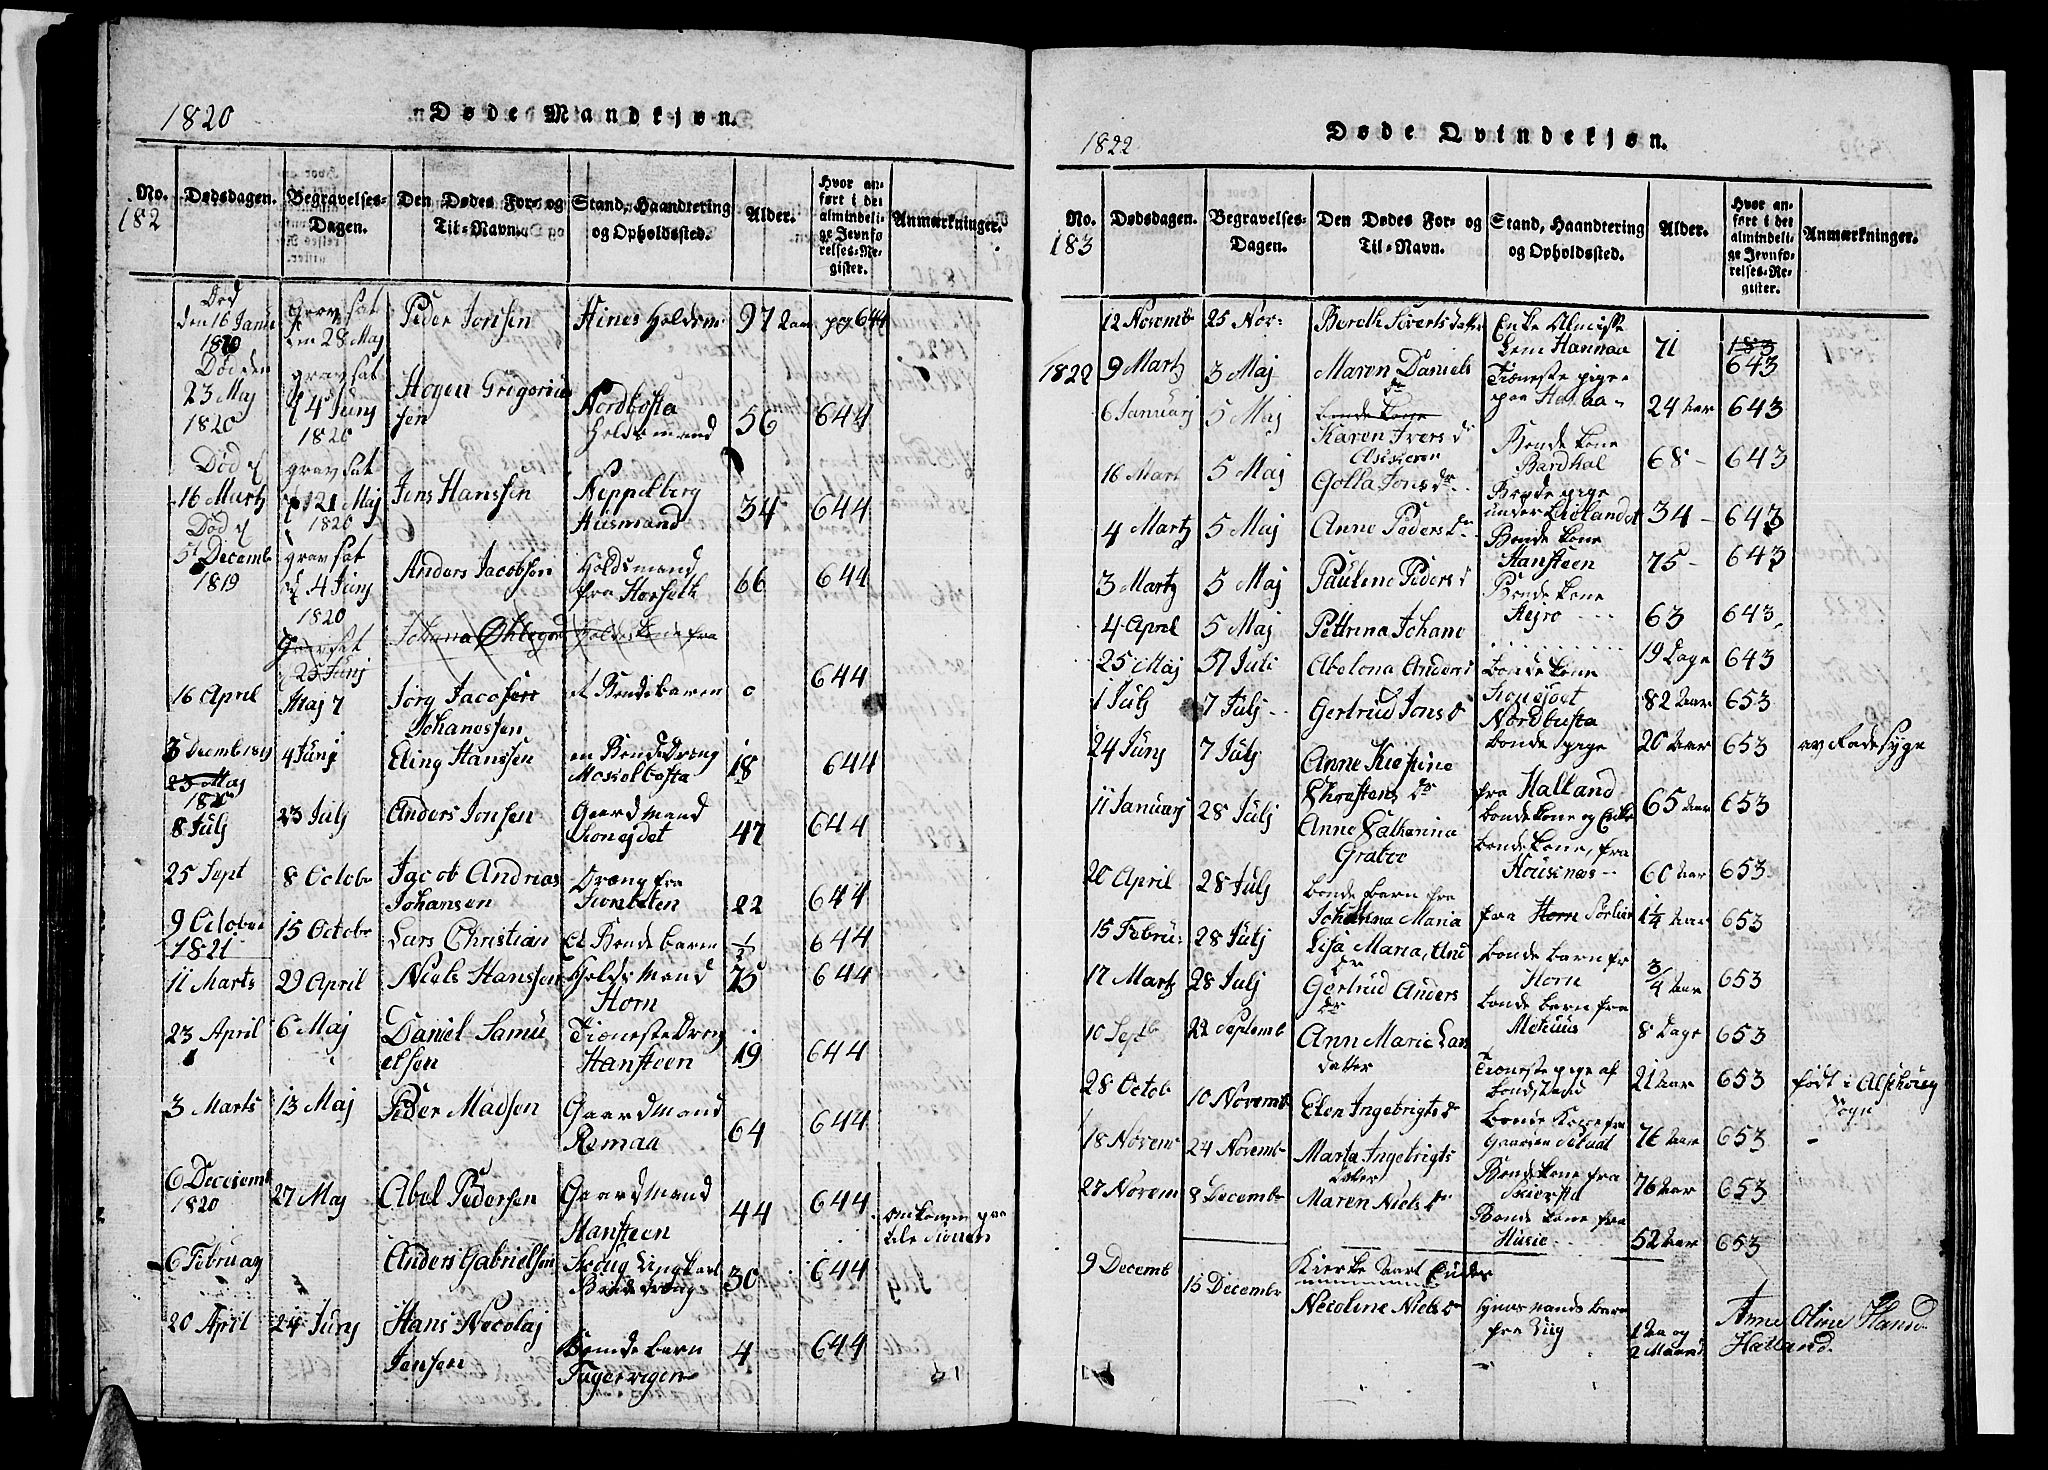 1820
Døde Mandkjøn.
No.
182
Dødsdagen.
Begravelses-
Dagen.
Den Dødes For- og
Til-Navn.
Stand, Haandtering
og Opholdssted.
Alder.
Hvor an-
ført i det
almindeli-
ge Jevnfø-
relses-Re-
gister.
Anmærkninger.
Død
den 16 Janu
gravsat
den 28 Maj
Peder Jonsen
97 Aar
pag 644
Død den
23 Maj
1820
gravsat
4 Junj
1820
Hogen Gregorius
sen
Nordbosta
Holdsmand
56
644
Død
16 Martz
gravsat
21 Maj
1820
Jens Hanssen
Neppelberg
Husmand
34
644
Død
5 Decemb
1819
gravsat
4 Junj
1820
Anders Jacobsen
Holdsmand
fra Horseth
66
644
Gravsat
25 Junj
16 April
Maj 7
Jørg Jacobsen
Johanessen
et Bondebaren
0
644
3 Decemb 1819
4 Junj
Eling Hanssen
en BondeDreng
Mosselbosta
18
644
23 Maj
8 Julj
23 Julj
Anders Jonsen
Gaardmand
47
644
25 Sept
8 Octobr
Jacob Andrias
Johansen
Dreng fra
22
644
9 October
1821
15 Octobr
Lars Christian
Et Bondebaren
1/2
644
11 Marts
29 April
Niels Hanssen
Holdsmand
Horn
75
644
23 April
6 Maj
Daniel Samu
elsen
TienesteDreng
Hansteen
19
644
3 Marts
13 Maj
Peder Madsen
Gaardmand
Remaa
64
644
6 Decsemb
1820
27 Maj
Abel Pedersen
Gaardmand
Hansteen
44
644
omkomen paa
6 Februarj
Anders Gabrielsen
30
644
20 April
24 Junj
Hans Necolaj
Jensen
Bondebarn
Fagervigen
4
644
1822
Døde Qvindekjøn.
No.
183
Dødsdagen.
Begravelses-
Dagen.
Den Dødes For- og
Til-Navn.
Stand, Haandtering
og Opholdssted.
Alder.
Hvor an-
ført i det
almindeli-
ge Jevnfø-
relses-Re-
gister.
Anmærkninger.
12 Novemb
25 Nov
Bereth Siverts datter
Enke Almisse
Lem Hannaa
71
183
643
1822
9 Martz
3 Maj
Maren Daniels
dr
Tieneste pige
paa Hanaa
24 Aar
643
6 Januarj
5 Maj
bonde kone
Karen Ivers dr
Bonde kone
Bardkal
68
643
16 Mart
5 Maj
Golla Jons dr
34
643
4 Martz
5 Maj
Anne Peders dr
Bonde kone
Hansteen
75
643
3 Martz
5 Maj
Paulene Peders d
Bonde kone
Hejro
63
643
4 April
5 Maj
Pettrina Johane
19 Dage
643
25 Maj
57 Juli
Abelona Anders
bonde kone
82 Aar
653
1 Julj
7 Julj
Gertrud Jons d
Nordbusta
bonde pige
20 Aar
653
av Radesyge
24 Junj
7 Julj
Anne Kiestine
Chrestens dr
fra Halland
bonde kone og Enke
65 Aar
653
11 Januarj
28 Julj
Anne Catharina
Grabo
bonde kone, fra
Housenæs
60 Aar
653
20 April
28 Julj
bonde barn fra
Johanna Maria
fra Horn Sørlie
1 1/4 Aar
653
15 Febru
28 Julj
Lisa Maria, And
dr
bonde barn fr
Horn
3/4 Aar
653
17 Martz
28 Julj
Gertrud Anders
dr
bonde barn fra
8 Dage
653
10 Septb
22 Septemb
Ann Marie Lars
datter
Tieneste pige af
bondstand
21 Aar
653
født i Alstahoug
Sogn
28 Octob
10 Novemb
Elen Ingebrigts dr
bonde Kone fra
76 Aar
653
18 Novem
24 Novemb
Marta Ingebrigts
datter
Bonde kone fra
76 Aar
653
27 Novem
8 Decembr
Maren Niels dr
Bonde kone fra
Husie
52 Aar
653
Kierke Aaret Endes
9 Decemb
15 Decembr
Necoline Niels dr
1 Aar og
2 Maaned
Anne Oline Hansd.
Halland.